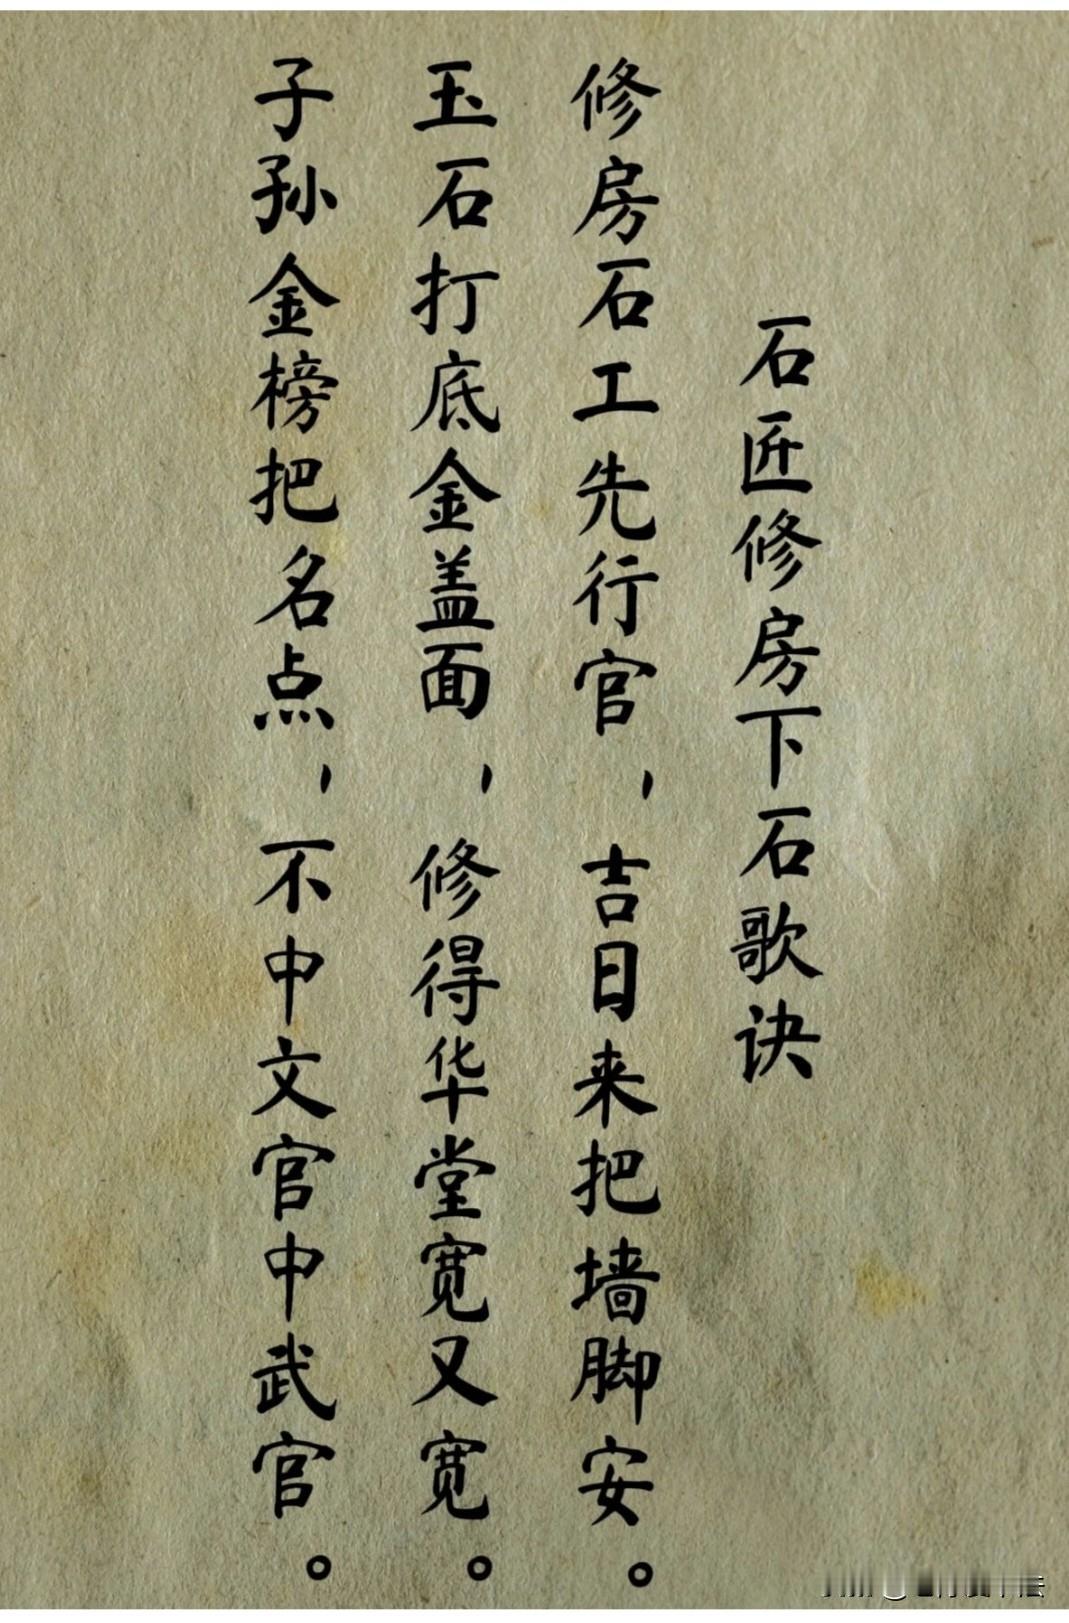 石匠修房下石歌诀
修房石工先行官，吉日来把墙脚安。
玉石打底金盖面，修得华堂宽又宽。
子孙金榜把名点，不中文官中武官。